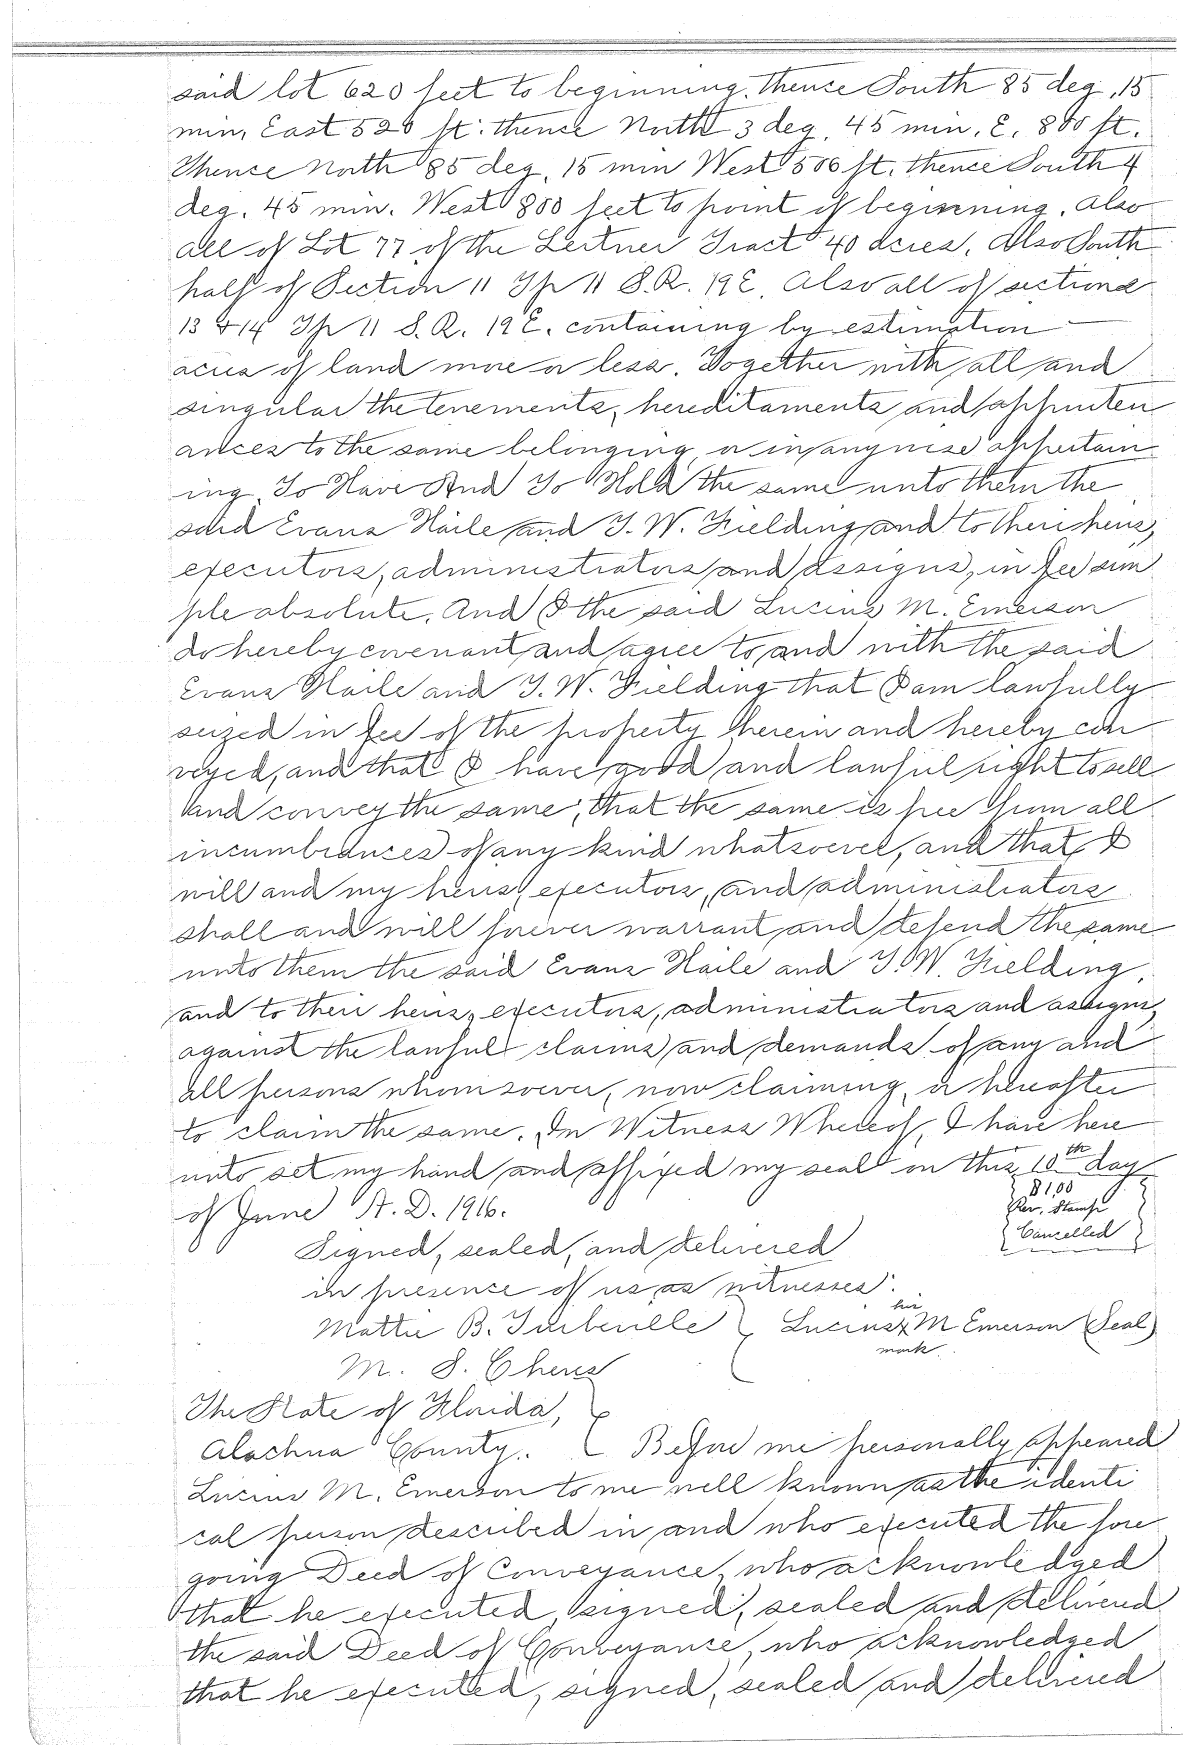 said lot 620 feet to beginning, thence South 85 deg, 15
min, East 520 ft: thence North 3 deg, 45 min, E, 800 ft.
Thence North 85 deg, 15 min West 500 ft, thence South 4
deg. 45 min. West 800 feet to point of beginning, Also
all of Lot 77 of the Leitner Tract 40 acres, Also South
half of Section 11 Tp 11 S.R. 19E, Also all of sections
13 & 14 Tp 11 S.R. 19E. containing by estimation
acres of land more or less. Together with all and
singular the tenements, hereditaments and appurten
ances to the same belonging or in anywise appertain
ing, To Have And To Hold the same unto them the
said Evans Haile and T. W. Fielding and to their heirs,
executors, administrators and assigns, in fee sim
ple absolute. And I the said Lucius M. Emerson
do hereby covenant and agree to and with the said
Evans Haile and T. W. Fielding that I am lawfully
seized in fee of the property herein and hereby con
veyed, and that I have good and lawful right to sell
and convey the same; that the same is free from all
incumbrances of any kind whatsoever, and that I
will and my heirs, executors, and administrators
shall and will forever warrant and defend the same
unto them the said Evans Haile and T. W. Fielding,
and to their heirs, executors, administrators and assigns,
against the lawful claims and demands of any and
all persons whomsoever, now claiming, or hereafter
to claim the same. In Witness Whereof, I have here
unto set my hand and affixed my seal on this 10th day
of June A. D. 1916.
$1,00
Rev. Stamp
Cancelled
Signed, sealed, and delivered
in presence of us as witnesses:
his
Mattie B. Turbeville Lucius x M Emerson (Seal)
mark
M. S. Cheves
The State of Florida,
Alachua County.. Before me personally appeared
Lucius M. Emerson to me well known as the identi
cal person described in and who executed the fore
going Deed of Conveyance, who acknowledged
that he executed, signed, sealed and delivered
the said Deed of Conveyance, who acknowledged
that he executed, signed, sealed and delivered